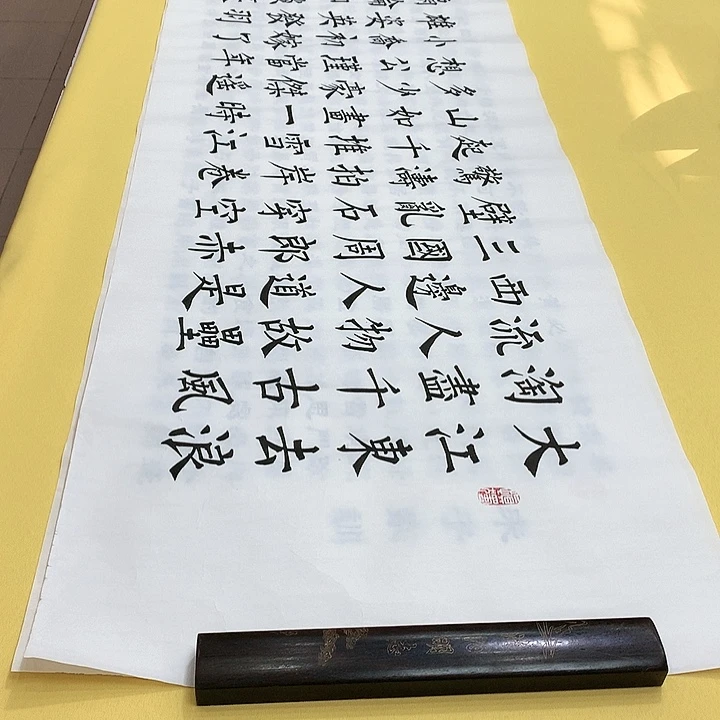 大江東去浪
淘盡千古風
流人物故壘
西邊人道是
三國周郎赤
壁亂石穿空
驚濤拍岸卷
起千堆雪江
山如畫一時
多少豪傑遙
想公瑾當年
小喬初嫁了
雄姿英發羽